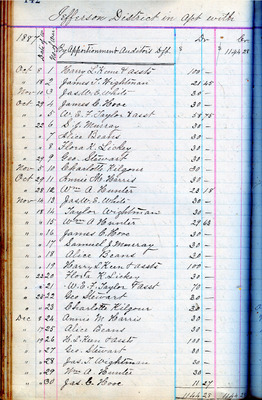 142
Jefferson District in apt with
1887 Dr Cr
By Apportionment Auditors Dft 1144 28
Oct 8 1 Harry S. Kune & assts 100 —
2 James T. Wightman 21 45
Nov 10 3 Jas. W. E. White 30 —
Oct 29 4 James E. Hove 30 —
5 W. E. F. Taylor & asst 58 75
22 6 S. J. Murray 30 —
7 Alice Beans 30 —
8 Flora K. Lickey 30 —
29 9 Geo. Stewart 30 —
Nov 5 10 Charlotte Kilgour 30 —
Oct 29 11 Annie M. Harris 30 —
28 12 Wm A. Hunter 28 18
Nov 10 13 Jas. W. E. White 30 —
14 Taylor Wightman 30 —
15 Wm A. Hunter 29 63
16 James E. Hove 30 —
17 Samuel J. Murray 30 —
18 Alice Beans 30 —
19 Harry S. Kune & assts 100 —
20 Flora K. Lickey 30 —
21 W. E. F. Taylor & asst 70 —
22 Geo Stewart 30 —
23 Charlotte Kilgour 30 —
Dec 24 Annie M. Harris 30 —
25 Alice Beans 30 —
26 H. S. Kune & assts 100
27 Geo. Stewart 30 —
28 Jas. T. Wightman 30 —
29 Wm A. Hunter 30 —
30 Jas. E. Hove 11 27
1144 28 1144 28